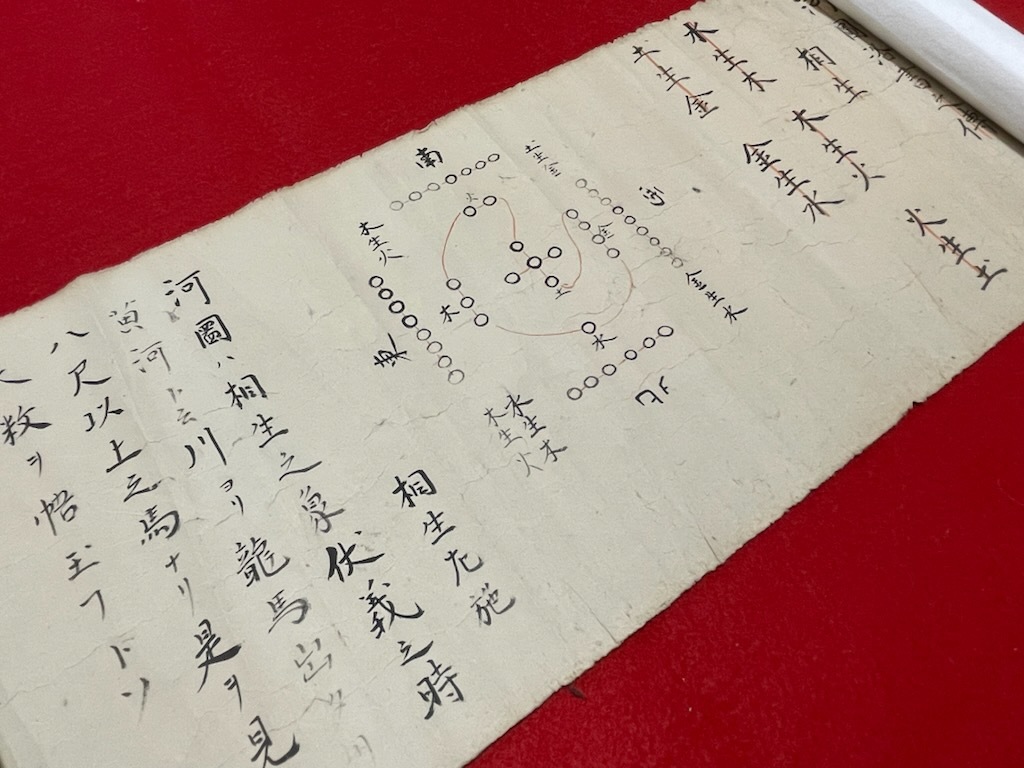 河圖洛書之傳
相生
木生火
火生土
水生木
金生水
土生金
南
土生金
火
金
金生水
木生火
木
土
水
東
北
水生木
木生火
相生左旋
河圖ハ相生之象伏義之時
黄河ト云川ヨリ龍馬出
八尺以上之馬ナリ是ヲ見
数ヲ悟玉フトソ